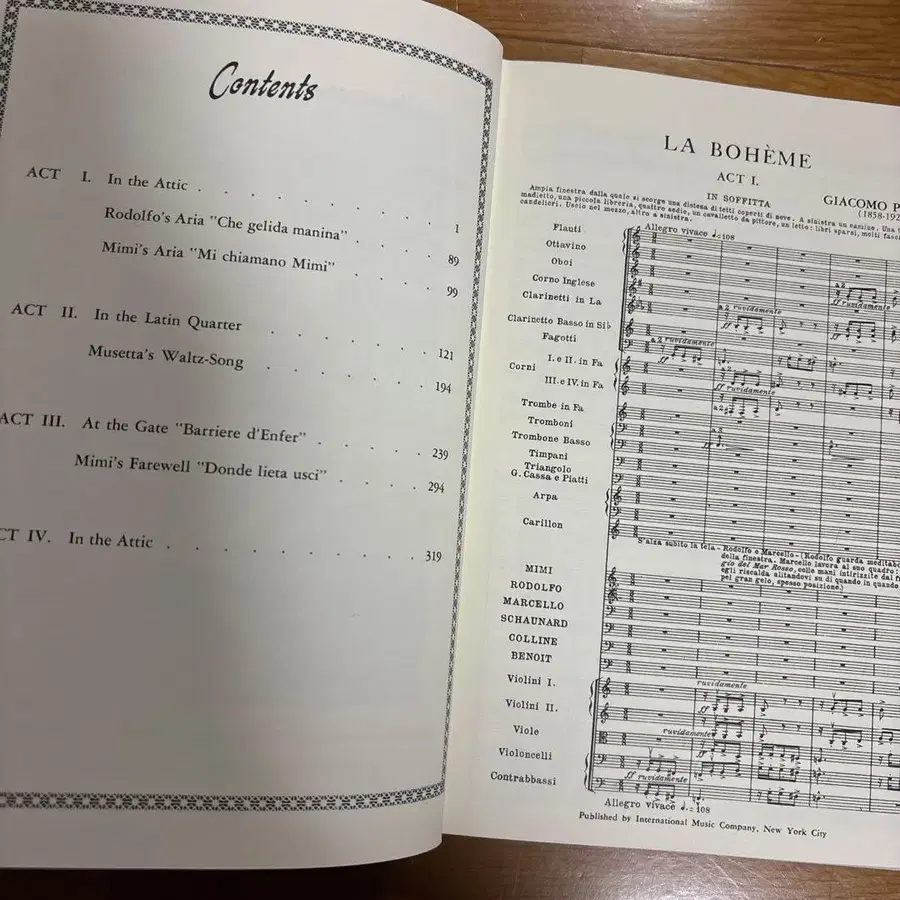 Contents
ACT I. In the Attic . . . . . . . . 1
Rodolfo's Aria "Che gelida manina" . . . . 89
Mimi's Aria "Mi chiamano Mimi" . . . . 99
ACT II. In the Latin Quarter . . . . . . 121
Musetta's Waltz-Song . . . . . . 194
ACT III. At the Gate "Barriere d'Enfer" . . . . . 239
Mimi's Farewell "Donde lieta usci" . . . . 294
CT IV. In the Attic . . . . . . . . . 319
LA BOHÈME
ACT I.
IN SOFFITTA
GIACOMO P
(1858-192
Ampia finestra dalla quale si scorge una distesa di tetti coperti di neve. A sinistra un camino. Una
madietto, una piccola libreria, quattro sedie, un cavalletto da pittore, un letto: libri sparsi, molti fasc
candelieri. Uscio nel mezzo, altro a sinistra.
Allegro vivace ♩.=108
Flauti
Ottavino
Oboi
Corno Inglese
Clarinetti in La
Clarinetto Basso in Si♭
Fagotti
Corni
I. e II. in Fa
III. e IV. in Fa
Trombe in Fa
Tromboni
Trombone Basso
Timpani
Triangolo
G. Cassa e Piatti
Arpa
Carillon
a 2
ff ruvidamente
a 2 ruvidamente
ff
a 2 ruvidamente
ff
ff ruvidamente
a 2
ff
S'alza subito la tela - Rodolfo e Marcello - (Rodolfo guarda meditabo
della finestra. Marcello lavora al suo quadro:
gio del Mar Rosso, colle mani intirizzite dal f
egli riscalda alitandovi su di quando in quando
pel gran gelo, spesso posizione)
MIMI
RODOLFO
MARCELLO
SCHAUNARD
COLLINE
BENOIT
Violini I.
Violini II.
Viole
Violoncelli
Contrabbassi
ruvidamente
ff
ruvidamente
ff
ff ruvidamente
Allegro vivace ♩.=108
Published by International Music Company, New York City